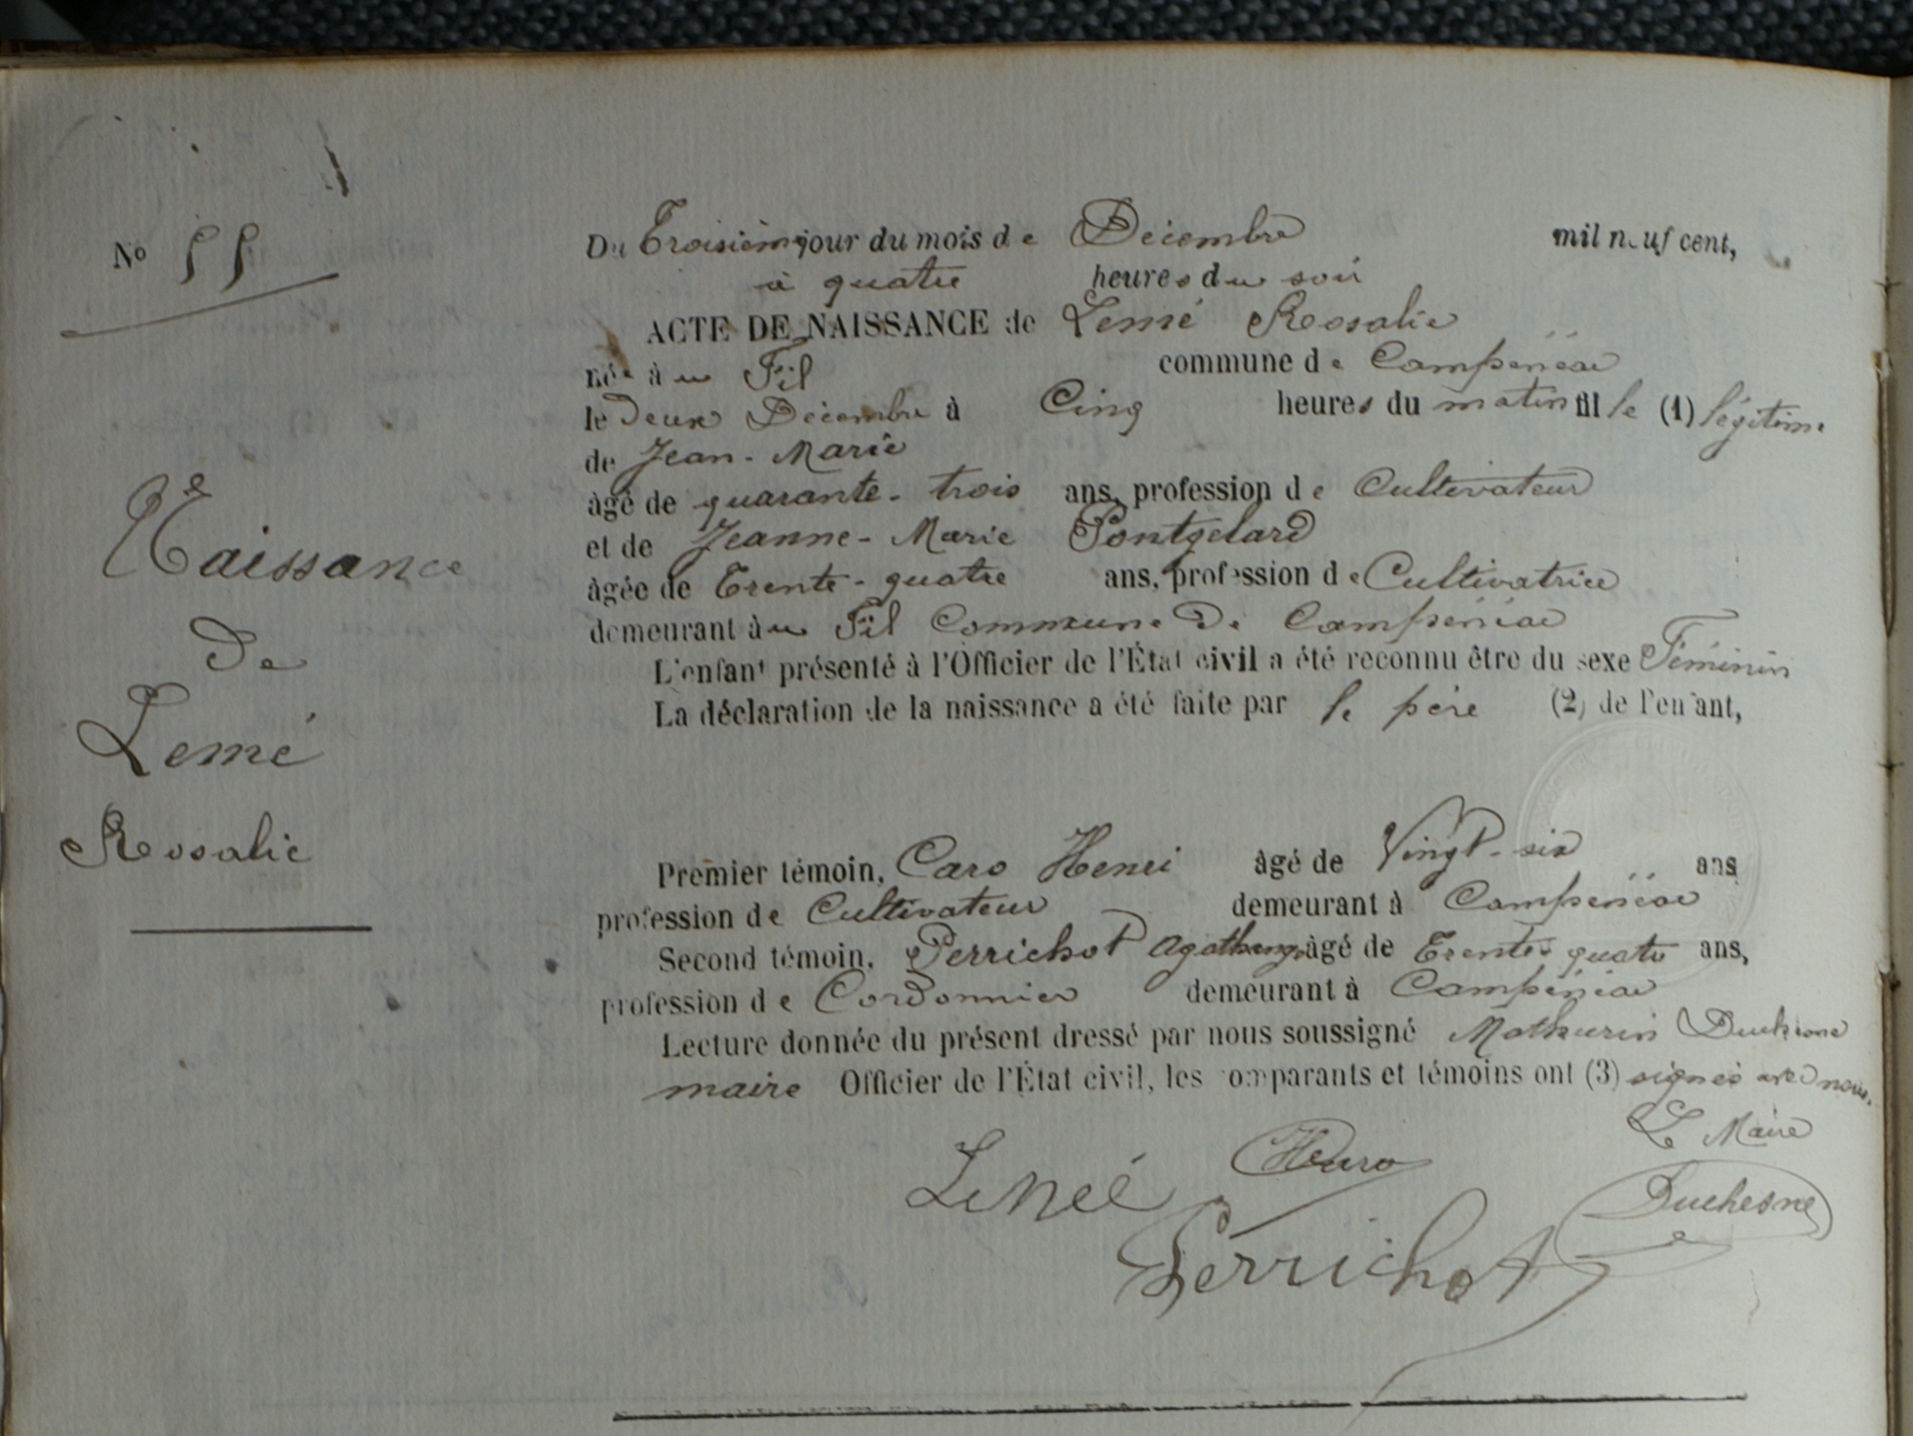 No 55
Naissance
de
Lemé
Rosalie
Du Troisièm jour du mois de Décembre mil neuf cent,
à quatre heures du soir
ACTE DE NAISSANCE de Lemé Rosalie
née à u Fil commune de Campénéac
le deux Décembre à Cinq heures du matin fille (1) légitime
de Jean-Marie
âgé de quarante-trois ans, profession de Cultivateur
et de Jeanne-Marie Pontgelard
âgée de Trente-quatre ans, profession de Cultivatrice
demeurant à u Fil Commune de Campénéac
L'enfant présenté à l'Officier de l'État civil a été reconnu être du sexe Féminin
La déclaration de la naissance a été faite par le père (2) de l'enfant,
Premier témoin, Caro Henri âgé de Vingt-six ans
profession de Cultivateur demeurant à Campénéac
Second témoin, Perrichot Agathange âgé de Trente-quatre ans,
profession de Cordonnier demeurant à Campénéac
Lecture donnée du présent dressé par nous soussigné Mathurin Duchesne
maire Officier de l'État civil, les comparants et témoins ont (3) signés avec nous.
Le Maire
Lemée
Duchesne
Perrichot